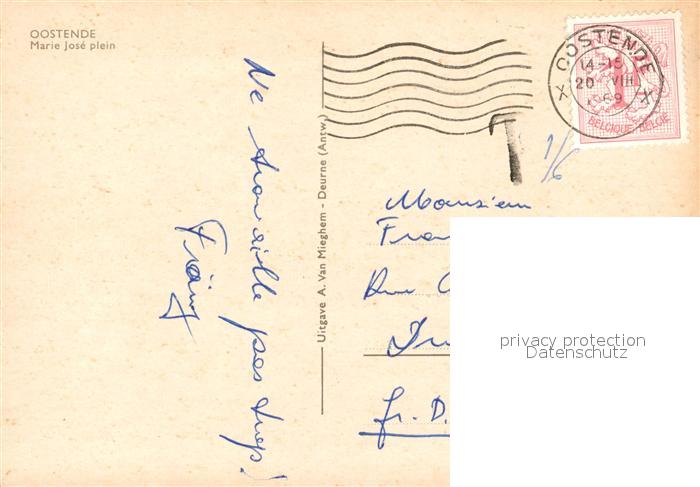 OOSTENDE
Marie José plein
Ne travaille pas trop!
Uitgave A. Van Mieghem - Deurne (Antw.)
OOSTENDE
14-15
20 VIII
1969
X X
BELGIQUE-BELGIE
T
1/6
Monsieur
Fran
Rue
Fr. D.
privacy protection
Datenschutz